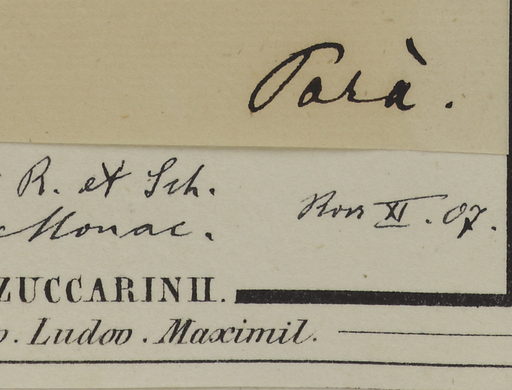 Parà.
R. et Sch.
Monac.
Ross XI. 07.
ZUCCARINII.
. Ludov. Maximil.